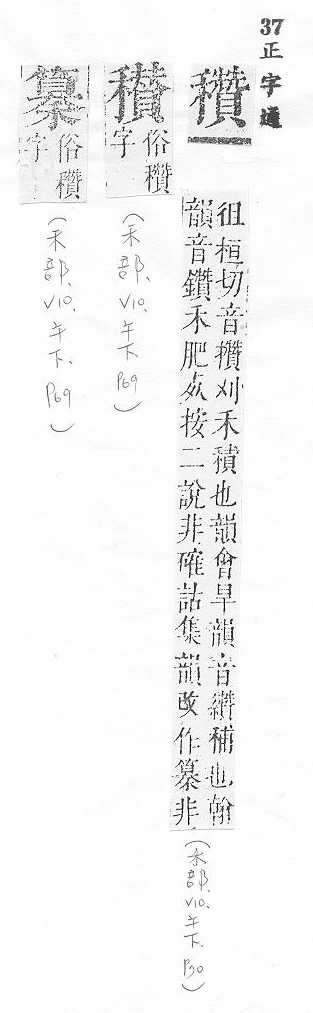 37 正字通
穳
徂桓切音攢刈禾積也韻會旱韻音纘秿也翰
韻音鑽禾肥按二說非確詁集韻改作非
(禾部、V10、午下、P30)
俗穳字
(禾部、V10、午下、P69)
俗穳字
(禾部、V10、午下、P69)